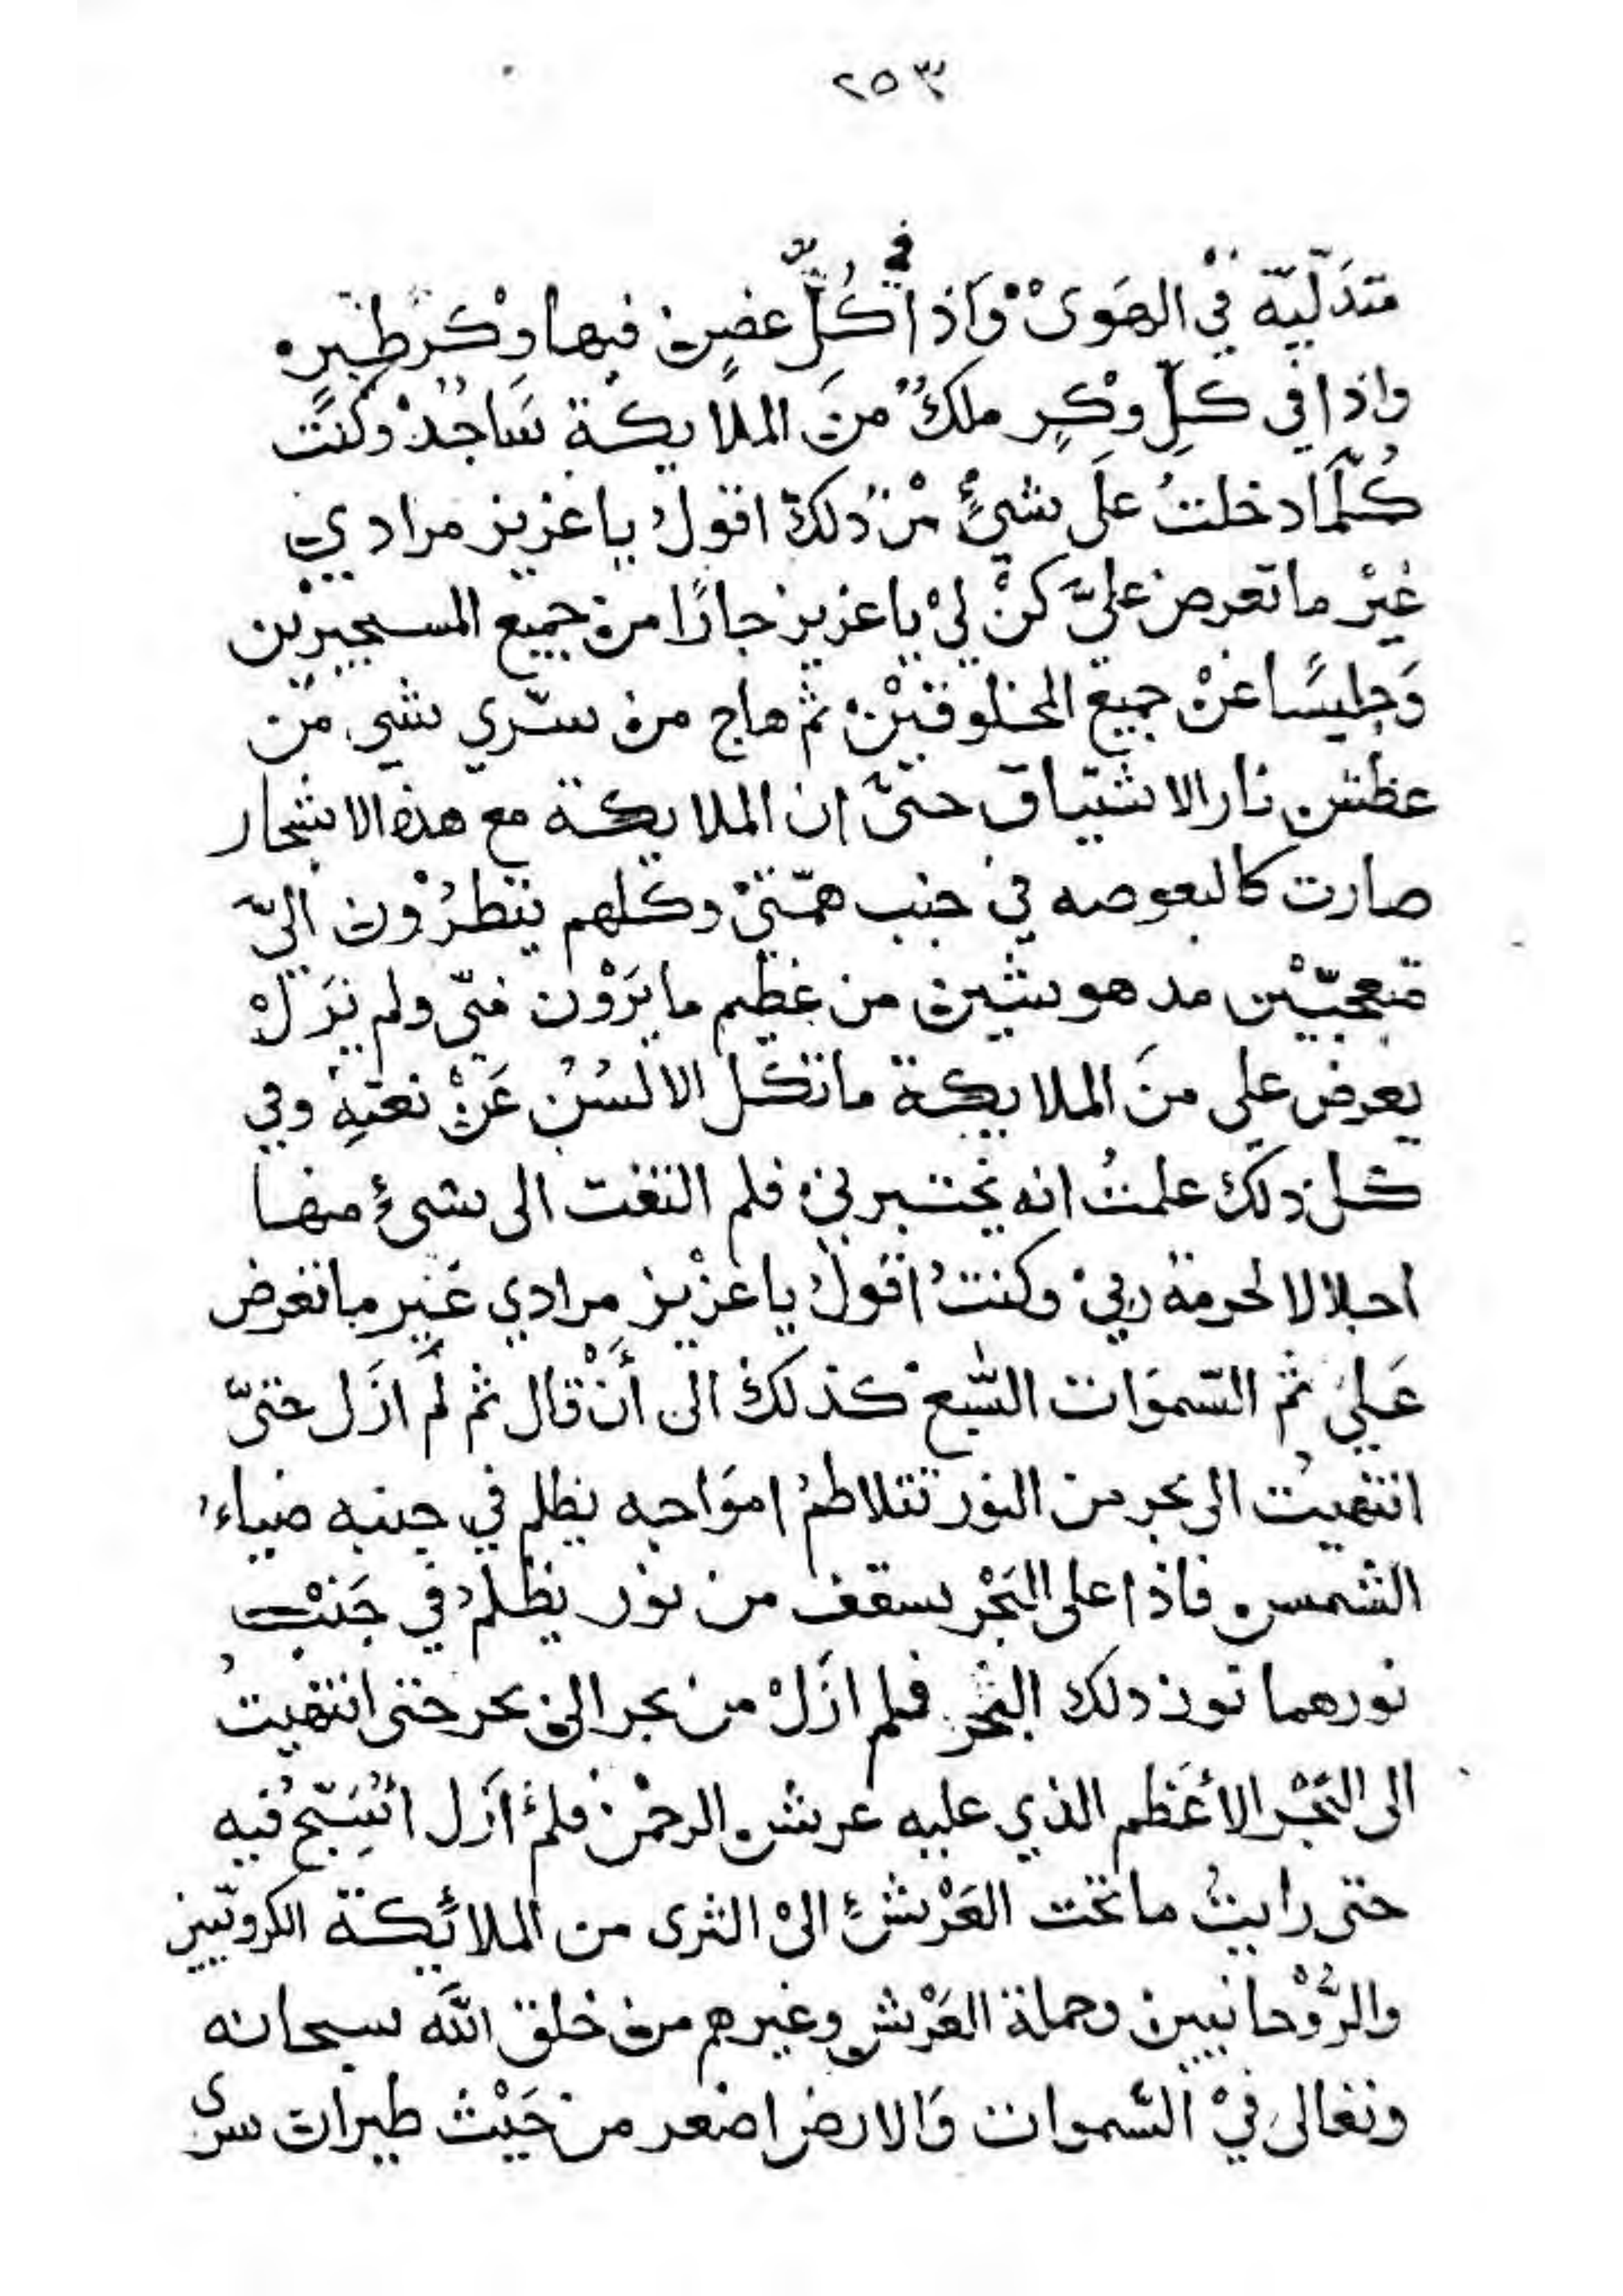 ٢٥٣
متدَلّيّة في الهَوىْ وَاذا في كُلِّ غصنٍ فيها وكْر طيرٍ
واذا في كلِّ وكْرٍ ملكٌ منَ الملايكة سَاجدٌ وكنت
كُلَّمَا دخلتُ علَى شيءٍ منْ ذلكَ اقولُ يا عزيز مرادي
غيْر ما تعرض عليَّ كنْ لِيْ يا عزيز جارًا من جميع المستجيرين
وَجليسًا عنْ جميع المخلوقيْن ثم هاج من سرّي شي من
عطش نار الاشتياق حتىّ ان الملايكة مع هذه الاشجار
صارت كالبعوضه في جنب همّتيْ وكلهم ينظرُوْن اليّ
متعجبّيْن مدهوشين من عظيم ما يَرَوْن منّي ولم يَزَلْ
يعرض علي منَ الملايكة ما تكل الالسُنُ عَنْ نعتِهِ وفي
كل ذلك علمتُ انه يختبرني فلم التفت الى شيءٍ منها
اجلالا لحرمة ربيْ وكنتُ اقولُ يا عزْيز مرادي غير ما تعرض
عَليَ ثم السّموَات السّبع كذلك الى أَنْ قال ثم لَمْ ازَل حتىّ
انتهيتُ الى بحر من النور تتلاطمُ امَواجه يظلم في جنبه ضياءُ
الشمس فاذا على البَحْر سقف من نور يظلمُ في جَنْب
نورهما نور ذلك البحْر فلم ازَلْ من بحر الى بحر حتى انتهيتُ
الى البَحْر الأعَظم الذي عليه عرش الرحمْن فلمْ اَزَل اُسَبّح فيه
حتى رايتُ ما تحت العَرْش الىْ الثرى من الملائكة الكروبّيين
والرُّوْحانيين وحملة العَرْش وغيرهم من خلق اللَّه سبحانه
وتعالىَ فيْ السّموات وَالارض اصغر من حَيْث طيران سرّى